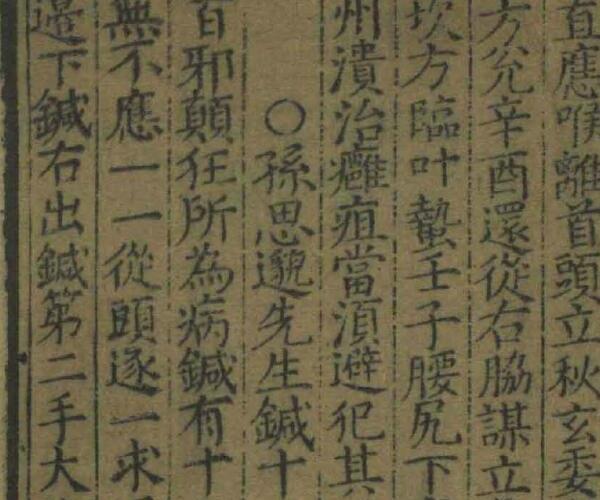 直應喉離首頭立秋玄委
方兊辛酉還從右脇謀立
坎方臨叶蟄壬子腰尻下
州潰治癰疽當湏避犯其
○孫思邈先生鍼十
百邪顛狂所為病鍼有十
無不應一一從頭逐一求
邉下鍼右出鍼第二手大